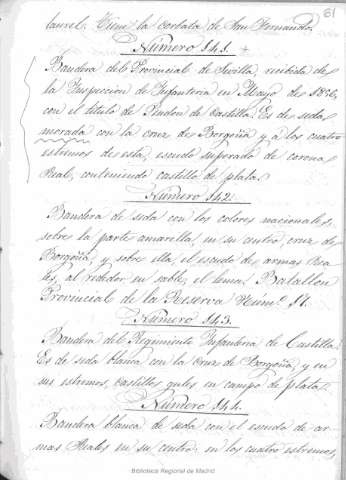 81
laurel. Tiene la corbata de San Fernando.
Número 141. +
Bandera del Provincial de Sevilla, recibida de
la Inspeccion de Infanteria en Mayo de
con el titulo de Pendon de Castilla. Es de seda
morada con la cruz de Borgoña y a los cuatro
estremos de esta, escudo superado de corona
Real, conteniendo castillo de plata.
Número 142.
Bandera de seda con los colores nacionales,
sobre la parte amarilla, en su centro, cruz de
Borgoña, y sobre ella, el escudo de armas Rea-
les, al rededor en sable, el lema: Batallon
Provincial de la Reserva Núm.º 11.
Número 143.
Bandera del Regimiento Infanteria de Castilla.
Es de seda blanca con la cruz de Borgoña, y en
sus estremos, castillos gules en campo de plata.
Número 144.
Bandera blanca de seda con el escudo de ar-
mas Reales en su centro, en los cuatro estremos,
Biblioteca Regional de Madrid